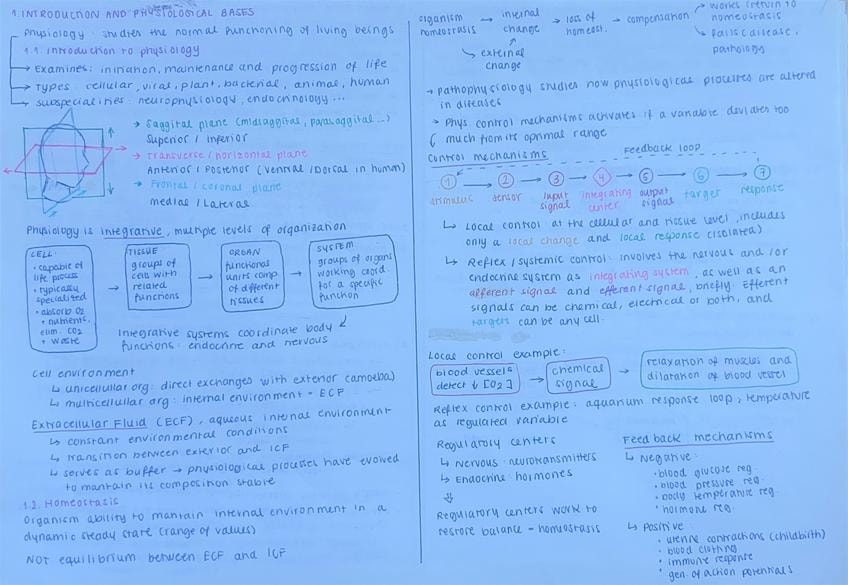 1. INTRODUCTION AND PHYSIOLOGICAL BASES
Physiology: studies the normal functioning of living beings
1.1. Introduction to physiology
→ Examines: initiation, maintenance and progression of life
→ Types: cellular, viral, plant, bacterial, animal, human
→ Subspecialities: neurophysiology, endocrinology ...
→ Saggital plane (midsaggital, parasaggital ...)
Superior / Inferior
→ Transverse / horizontal plane
Anterior / Posterior (ventral / Dorsal in human)
→ Frontal / coronal plane
medial / Lateral
Physiology is integrative, multiple levels of organization
CELL:
• capable of
life process
• typically
specialized
• absorb O2
+ nutrients,
elim. CO2
+ waste
→
TISSUE
groups of
cells with
related
functions
→
ORGAN
functional
units comp
of different
tissues
→
SYSTEM
groups of organs
working coord.
for a specific
function
Integrative systems coordinate body
functions: endocrine and nervous
Cell environment
↳ unicellular org: direct exchanges with exterior (amoeba)
↳ multicellular org: internal environment = ECF
Extracellular Fluid (ECF), aqueous internal environment
↳ constant environmental conditions
↳ transition between exterior and ICF
↳ serves as buffer → physiological processes have evolved
to mantain its composition stable
1.2. Homeostasis
Organism ability to mantain internal environment in a
dynamic steady state (range of values)
NOT equilibrium between ECF and ICF
organism
homeostasis
→ internal
change
→ loss of
homeost.
→ compensation
works (return to
homeostasis
fails (disease,
pathology
external
change
→ Pathophysiology studies how physiological processes are altered
in diseases
→ Phys. control mechanisms activates if a variable deviates too
much from its optimal range
Control mechanisms
Feedback loop
1 → 2 → 3 → 4 → 5 → 6 → 7
stimulus sensor input signal integrating center output signal target response
↳ Local control at the cellular and tissue level, includes
only a local change and local response (isolated)
↳ Reflex / systemic control: involves the nervous and /or
endocrine system as integrating system, as well as an
afferent signal and efferent signal, briefly. Efferent
signals can be chemical, electrical or both, and
targets can be any cell.
Local control example:
blood vessels
detect ↓ [O2]
→
chemical
signal
→
relaxation of muscles and
dilatation of blood vessel
Reflex control example: aquarium response loop, temperature
as regulated variable
Regulatory centers
↳ Nervous: neurotransmitters
↳ Endocrine: hormones
⇓
Regulatory centers work to
restore balance = homeostasis
Feed back mechanisms
↳ Negative:
• blood glucose reg.
• blood pressure reg.
• body temperature reg.
• hormone reg.
↳ Positive:
• uterine contractions (childbirth)
• blood clothing
• immune response
• gen. of action potentials